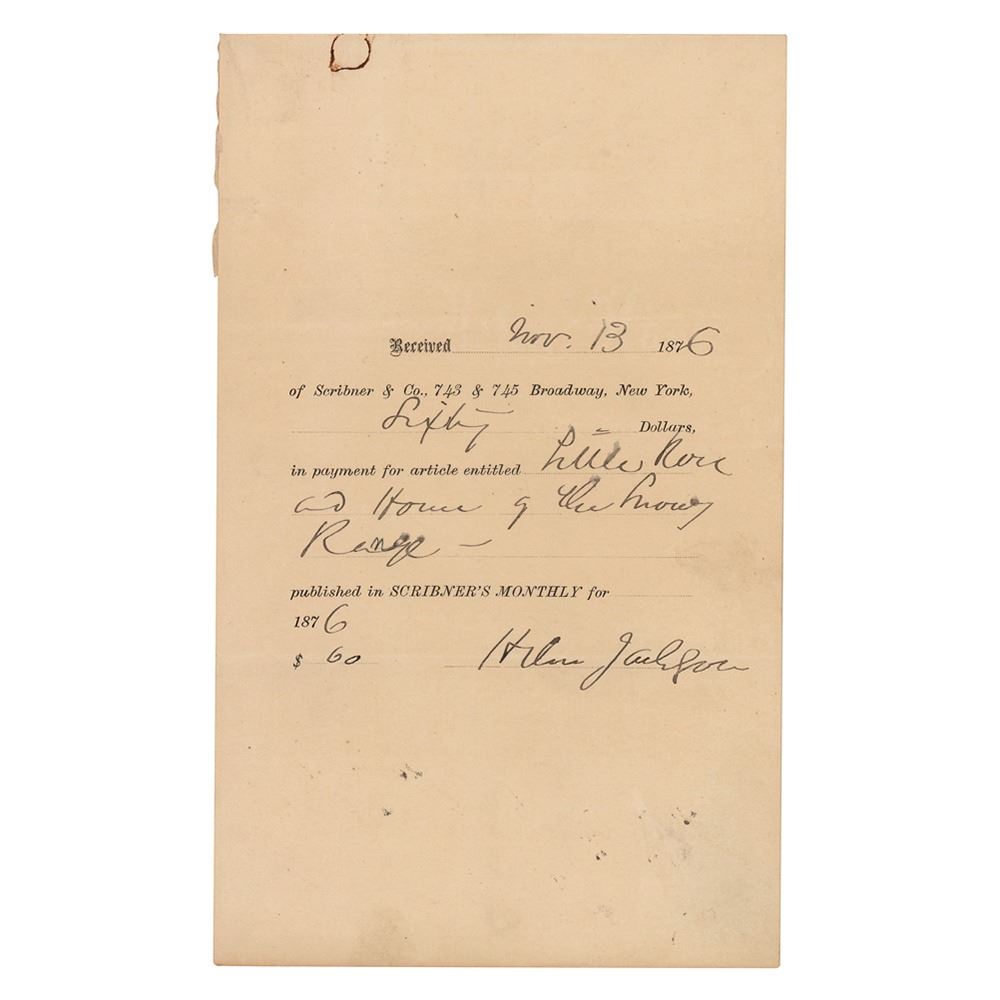 Received Nov. 13 1876
of Scribner & Co., 743 & 745 Broadway, New York,
Sixty = Dollars,
in payment for article entitled Little Rose
and House of the Snowy
Range –
published in SCRIBNER'S MONTHLY for
1876
$ 60 Helen Jackson